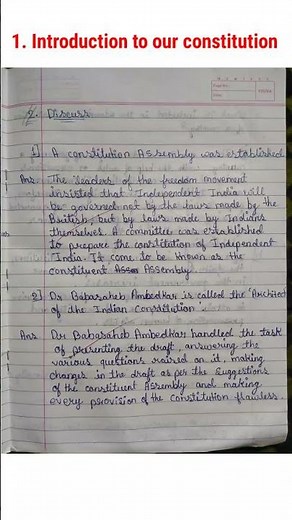 1. Introduction to our constitution
2. Discuss
1) A constitution Assembly was established
Ans The leaders of the freedom movement
insisted that Independent India will
be governed not by the laws made by the
British, but by laws made by Indians
themselves. A committee was established
to prepare the constitution of Independent
India. It come to be known as the
constituent Assembly.
2) Dr Babasaheb Ambedkar is called the 'Architect
of the Indian Constitution'.
Ans Dr Babasaheb Ambedkar handled the task
of presenting the draft, answering the
various quetions raised on it, making
changes in the draft as per the suggestions
of the constituent Assembly and making
every provision of the Constitution flawless.